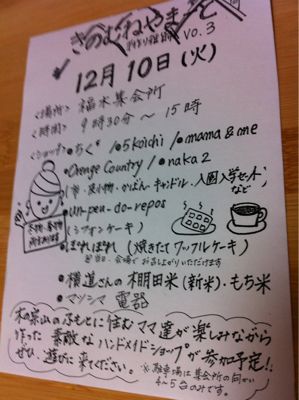 きのむねやま
手作り雑貨市 vo.3
12月10日(火)
<場所> 福木集会所
<時間> 9時30分〜15時
<ショップ> •ちく* /•5koichi /•mama&me
•Orenge Country /•naka2
(布・皮小物・かばん・キャンドル・入園入学セット
など)
•un-peu-do-repos
(シフォンケーキ)
•ぽれぽれ (焼きたてワッフルケーキ)
※当日、会場でお召し上がりいただけます
•横道さんの棚田米(新米)・もち米
•マツシマ 電器
木の宗山のふもとに住むママ達が楽しみながら
作った素敵なハンドメイドショップが参加予定!!
ぜひ、遊びに来てください。
※駐車場は集会所の向かい
4〜5台のみです。